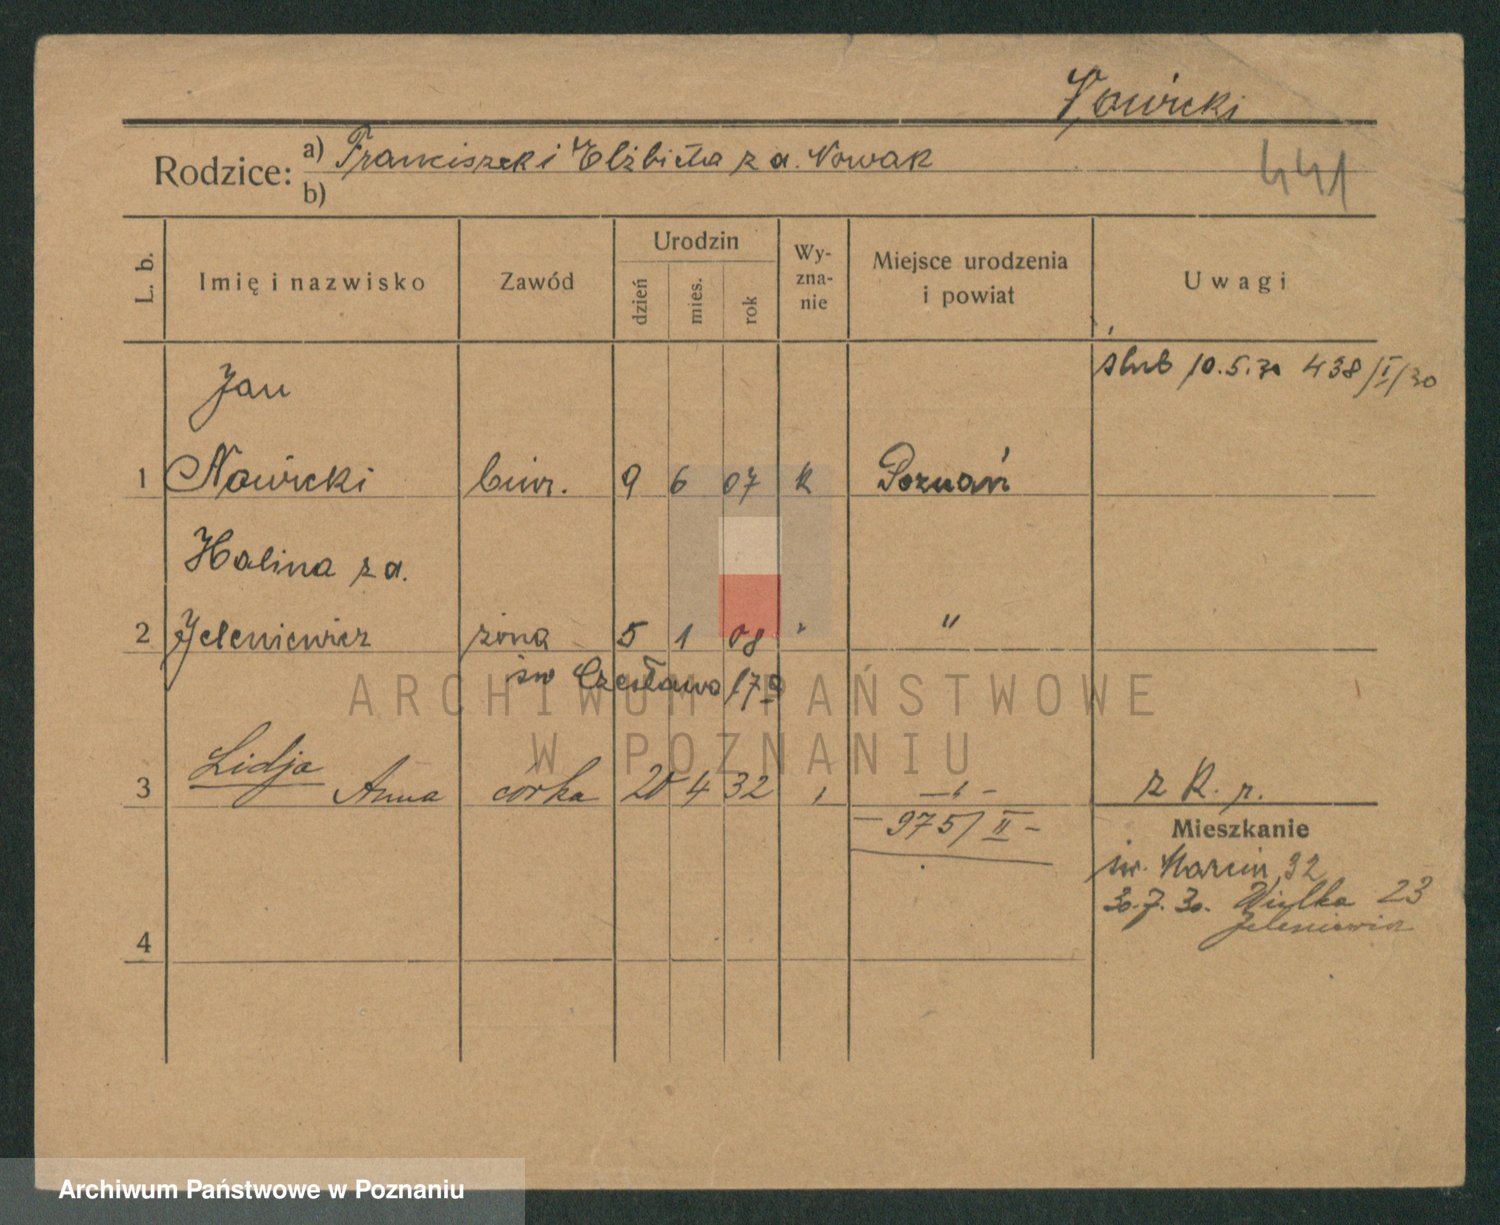 Nowicki
Rodzice: a) Franciszek i Elżbieta z d. Nowak
b)
441
L. b.
Imię i nazwisko
Zawód
Urodzin
dzień
mies.
rok
Wy-
zna-
nie
Miejsce urodzenia
i powiat
Uwagi
ślub 10.5.30 438/I/30
Jan
1 Nowicki biur. 9 6 07 k Poznań
Halina z d.
2 Jeleniewicz żona 5 1 08 " "
św Czesława 17a
3 Lidja Anna córka 20 4 32 z R. p.
975/II
Mieszkanie
św. Marcin 32
30.7.30. Wielka 23
Jeleniewicz
4
ARCHIWUM PAŃSTWOWE
W POZNANIU
Archiwum Państwowe w Poznaniu